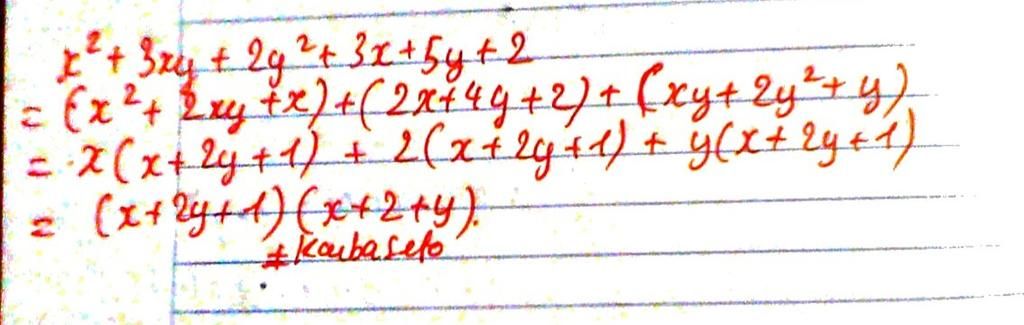 x² + 3xy + 2y² + 3x + 5y + 2
= (x² + 2xy + x) + (2x + 4y + 2) + (xy + 2y² + y)
= x(x + 2y + 1) + 2(x + 2y + 1) + y(x + 2y + 1)
= (x + 2y + 1)(x + 2 + y).